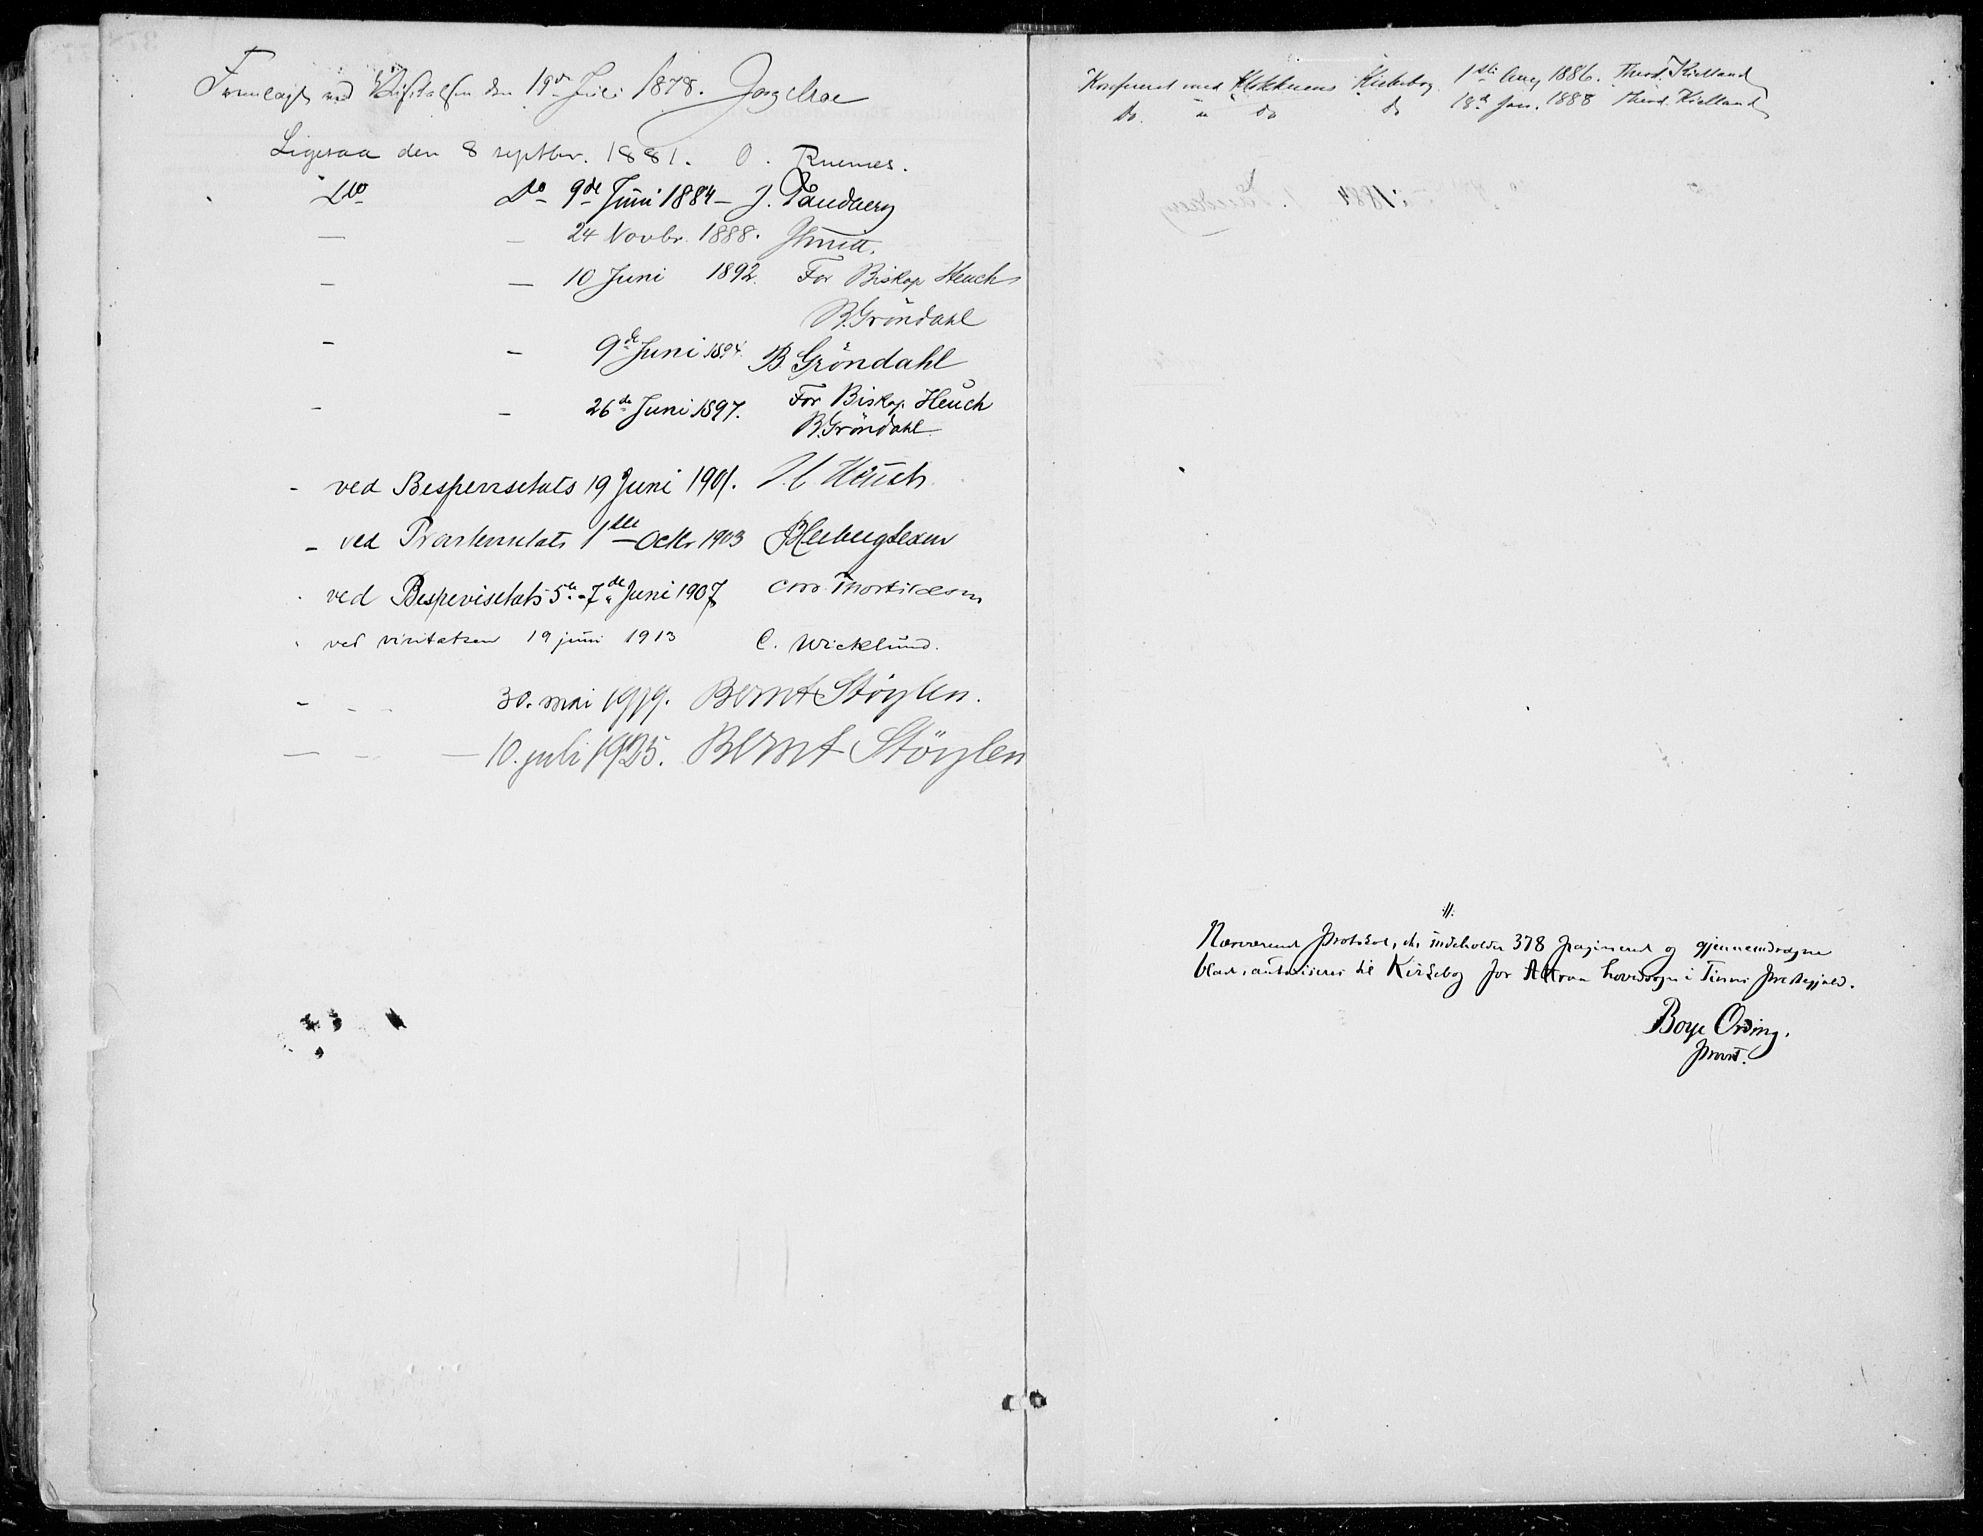 Fremlagt ved Visitatsen den 19de Juli 1878. Jørgen Moe
Ligesaa den 8 septbr. 1881. O.
Do Do 9de Juni 1884 – J. Tandberg
— — 24 Novbr. 1888. Smitt.
— — 10 Juni 1892. For Biskop Heuch
B. Gröndahl
— — 9de Juni 1894. B Gröndahl
— — 26de Juni 1897. For Biskop Heuch
B. Gröndahl.
— ved Bispevisitats 19 Juni 1901. J. C. Heuch.
— ved Provstevisitats 1ste Octbr 1903
ved Bispevisitats 5te - 7de Juni 1907
ved visitatsen 19 juni 1913 C. Wicklund.
- - - 30. mai 1919. Bernt Støylen.
— — — 10. juli 1925. Bernt Støylen
Konfereret med Klokkerens Kirkebog 1ste Aug 1886. Theod. Kielland
do. " do do 18de Jan. 1888 Theod. Kielland
://:
Nærværende Protokol, der indeholder 378 paginerede og gjennemdragne
blade, autoriseres til Kirkebog for Attraa hovedsogn i Tinns Præstegjæld.
Boye Ording.
Provst.